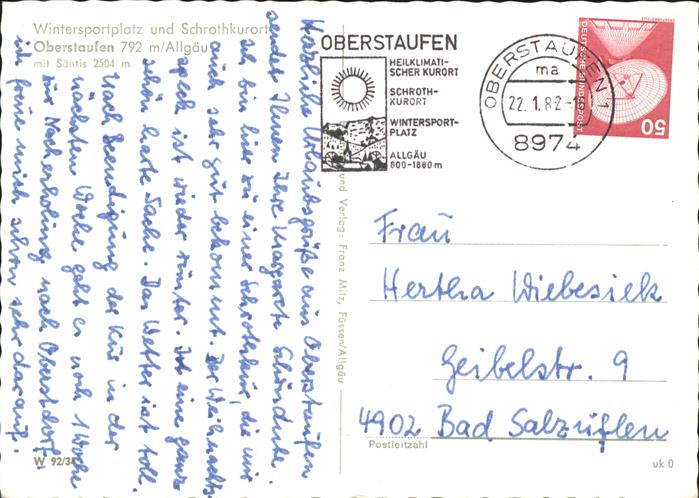 Wintersportplatz und Schrothkurort
Oberstaufen 792 m/Allgäu
mit Säntis 2504 m
OBERSTAUFEN
HEILKLIMATI-
SCHER KURORT
SCHROTH-
KURORT
WINTERSPORT-
PLATZ
ALLGÄU
800-1880 m
OBERSTAUFEN 1
ma
22.1.82
8974
DEUTSCHE BUNDESPOST
50
Herzliche Urlaubsgrüße aus Oberstaufen
sendet Ihnen Ihre Margarete
Ich bin hier zu einer Schrothkur, die mir
auch sehr gut bekommt. Der Weihnachts
speck ist wieder runter. Ist eine ganz
schön harte Sache. Das Wetter ist toll.
Nach Beendigung der Kur in der
nächsten Woche geht es noch 1 Woche
zur Nacherholung nach Oberstdorf.
Ich freue mich schon sehr darauf.
und Verlag: Franz Milz, Füssen/Allgäu
Frau
Hertha Wiebesiek
Geibelstr. 9
4902 Bad Salzuflen
Postleitzahl
W 92/34
uk 0